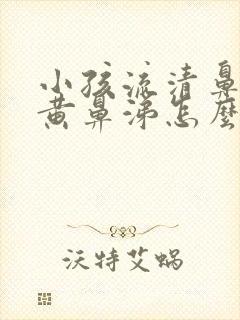 小孩流清鼻
黄鼻涕怎麽
沃特艾蜗